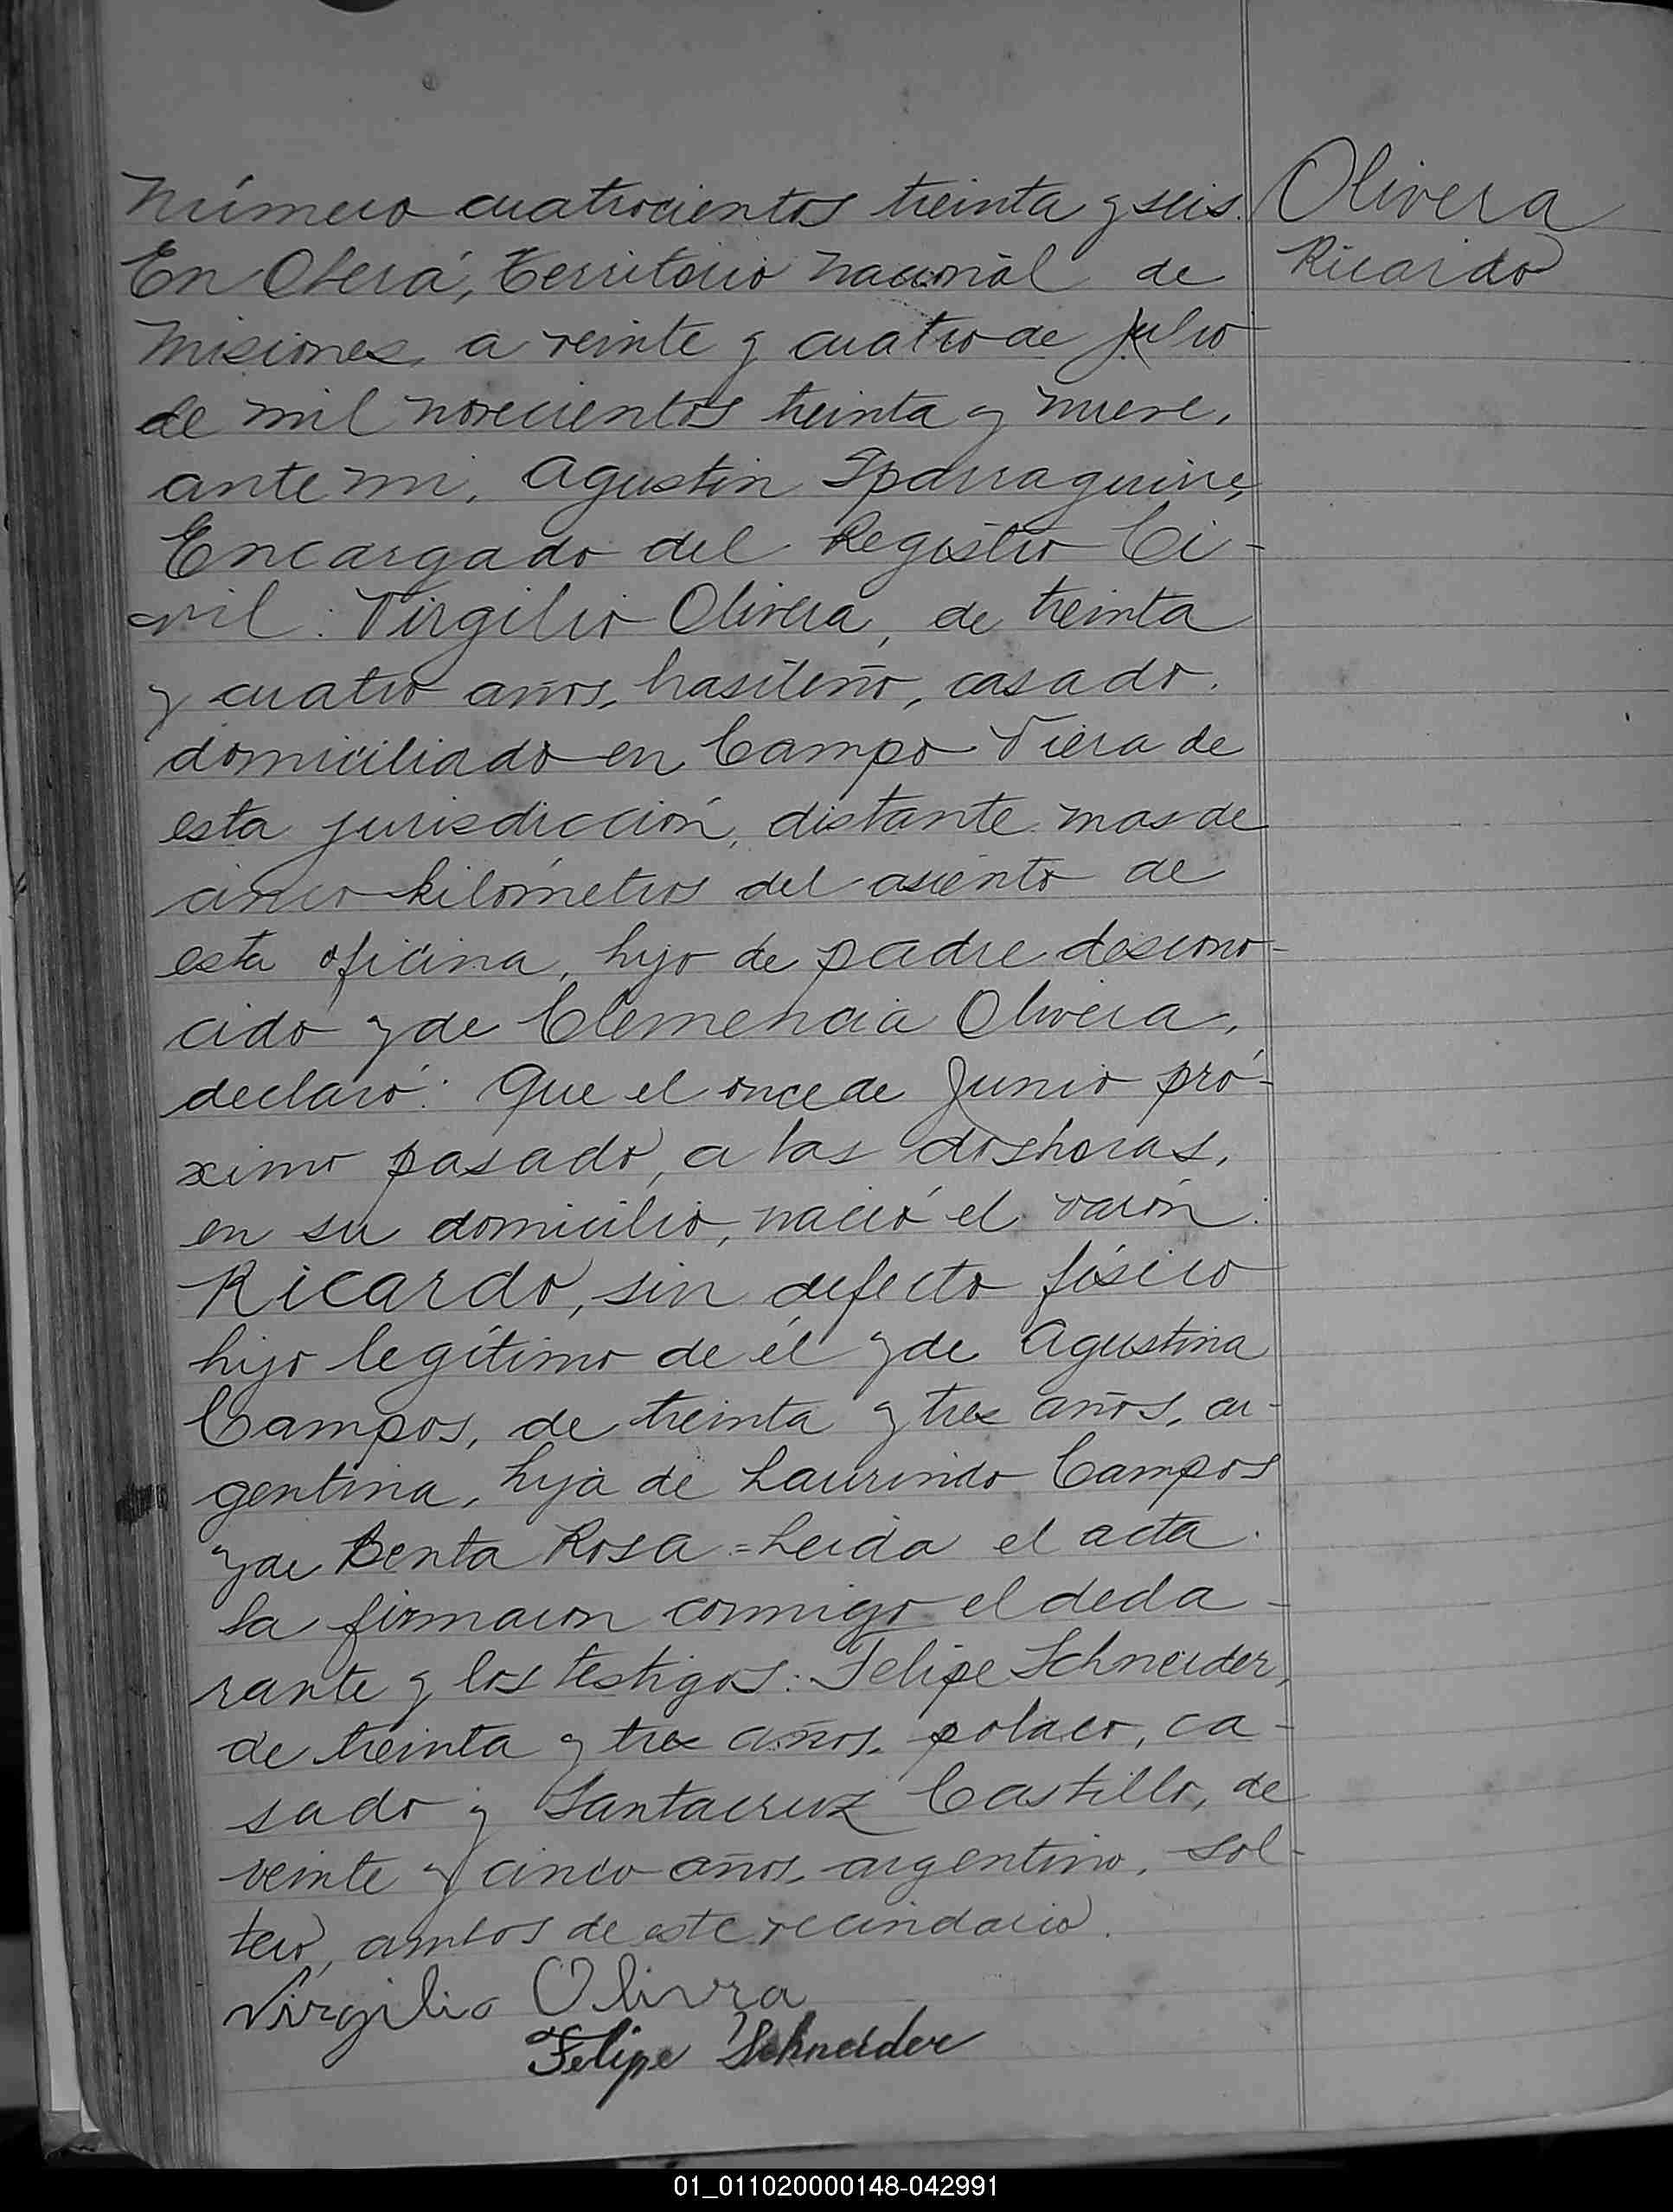 Número cuatrocientos treinta y seis.
En Oberá, Territorio Nacional de
Misiones, a veinte y cuatro de julio
de mil novecientos treinta y nueve,
ante mi, Agustin Iparraguirre,
Encargado del Registro Ci-
vil: Virgilio Olivera, de treinta
y cuatro años, brasileño, casado,
domiciliado en Campo Viera de
esta jurisdicción, distante mas de
cinco kilómetros del asiento de
esta oficina, hijo de padre descono-
cido y de Clemencia Olivera,
declaró: Que el once de Junio pró-
ximo pasado, a las dos horas,
en su domicilio, nació el varón:
Ricardo, sin defecto físico
hijo legítimo de él y de Agustina
Campos, de treinta y tres años, ar-
gentina, hija de Laurindo Campos
y de Benta Rosa = Leida el acta
la firmaron conmigo el decla-
rante y los testigos: Felipe Schneider,
de treinta y tres años, polaco, ca-
sado y Santacruz Castillo, de
veinte y cinco años, argentino, sol-
tero, ambos de este vecindario.
Virgilio Olivra
Felipe Schneider
Olivera
Ricardo
01_011020000148-042991